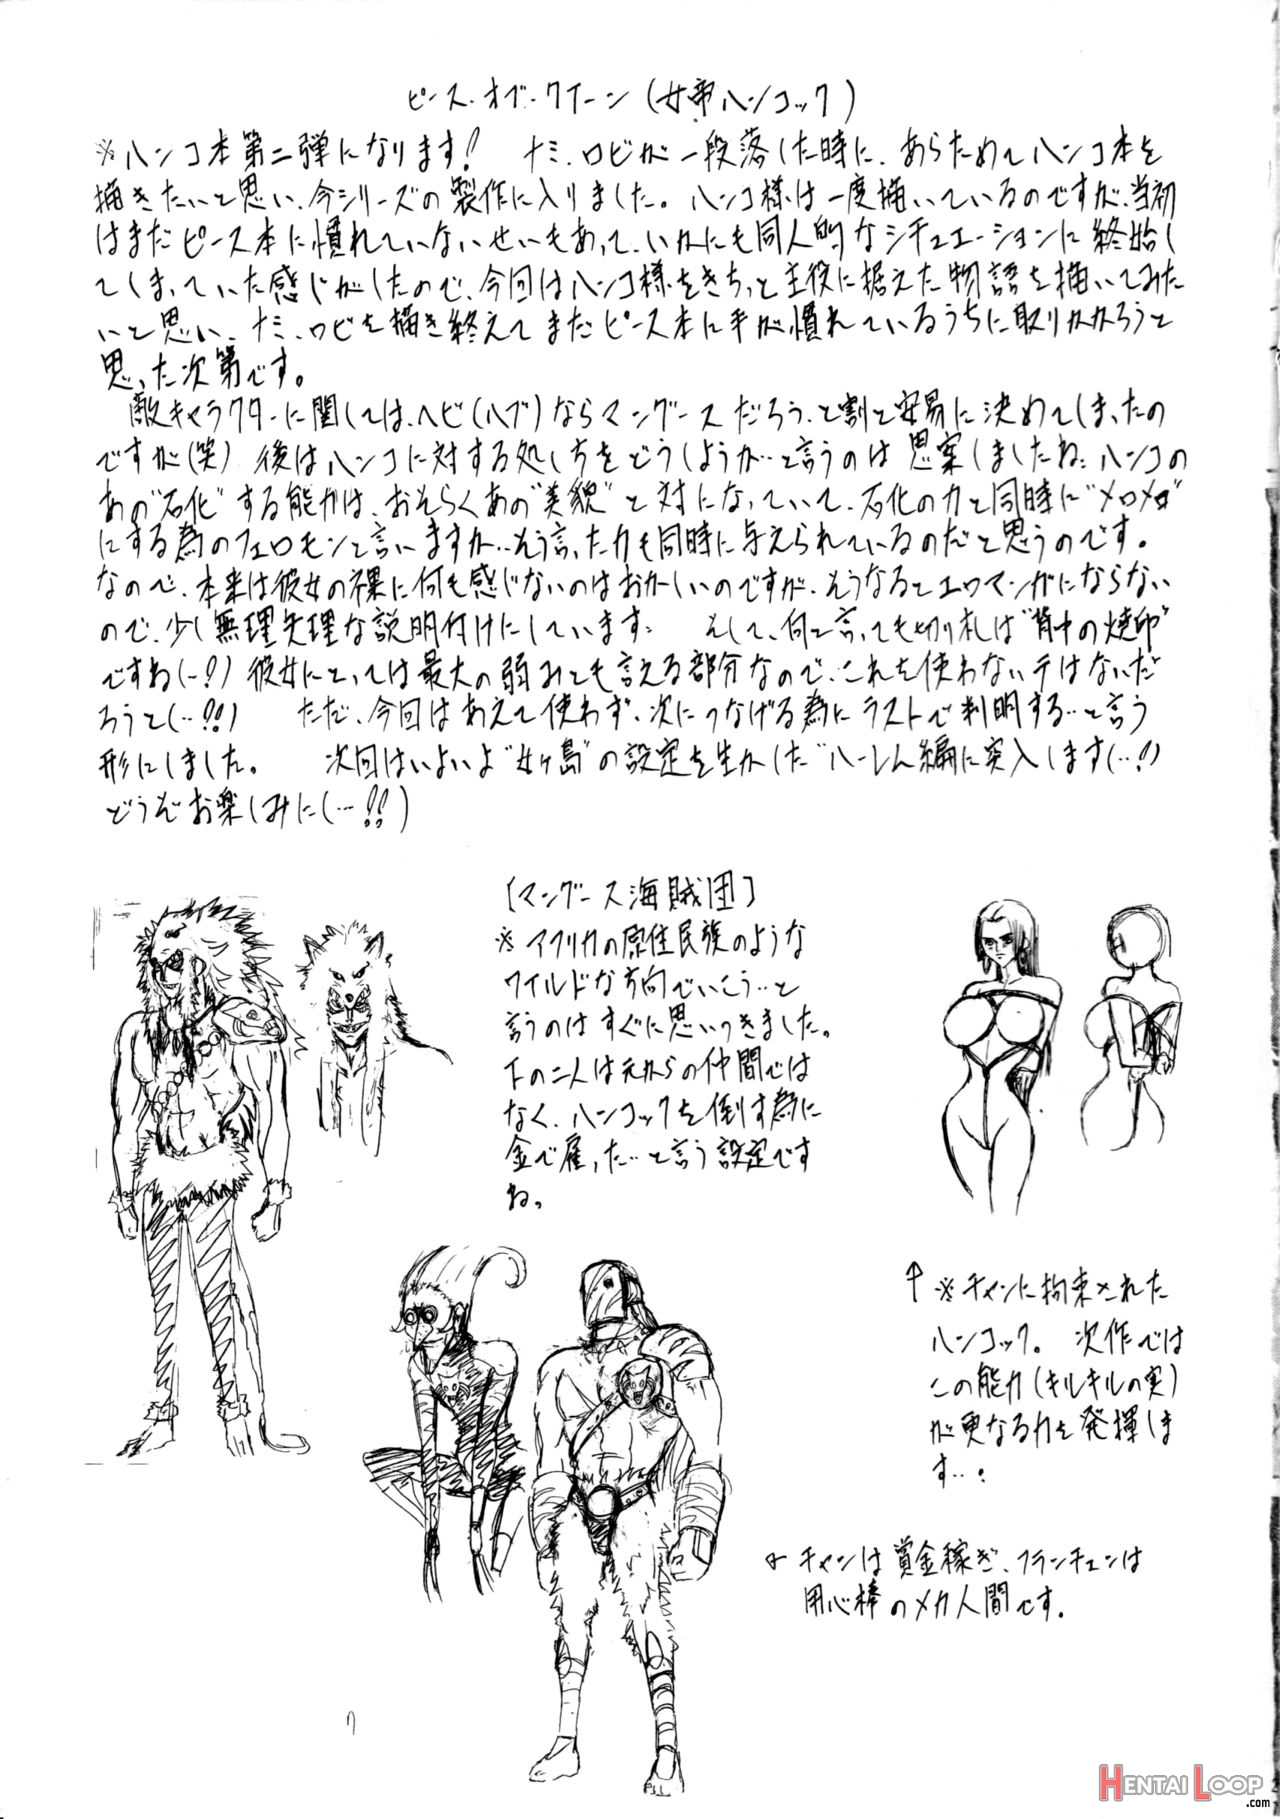 ピース・オブ・クイーン(女帝ハンコック)
※ハンコ本第二弾になります! ナミ、ロビが一段落した時に、あらためてハンコ本を
描きたいと思い、今シリーズの製作に入りました。ハンコ様は一度描いているのですが、当初
はまだピース本に慣れていないせいもあって、いかにも同人的なシチュエーションに終始し
てしまっていた感じがしたので、今回はハンコ様をきちっと主役に据えた物語を描いてみた
いと思い、ナミ、ロビを描き終えてまだピース本に手が慣れているうちに取りかかろうと
思った次第です。
敵キャラクターに関しては、ヘビ(ハブ)ならマングースだろう、と割と安易に決めてしまったの
ですが(笑) 後はハンコに対する処し方をどうしようか…と言うのは思案しましたね、ハンコの
あの"石化"する能力は、おそらくあの"美貌"と対になっていて、石化の力と同時に"メロメロ"
にする為のフェロモンと言いますか…そう言った力も同時に与えられているのだと思うのです。
なので、本来は彼女の裸に何も感じないのはおかしいのですが、そうなるとエロマンガにならない
ので、少し無理矢理な説明付けにしています、 そして、何と言っても切り札は"背中の焼印"
ですね(…!) 彼女にとっては最大の弱みとも言える部分なので、これを使わないテはないだ
ろうと(…!!) ただ、今回はあえて使わず、次につなげる為にラストで判明する…と言う
形にしました。 次回はいよいよ"女ヶ島"の設定を生かした"ハーレム編に突入します(…!)
どうぞお楽しみに(…!!)
[マングース海賊団]
※アフリカの原住民族のような
ワイルドな方向でいこう…と
言うのはすぐに思いつきました。
下の二人は元からの仲間では
なく、ハンコックを倒す為に
金で雇った…と言う設定です
ね。
↑※チャンに拘束された
ハンコック。 次作では
この能力(キルキルの実)
が更なる力を発揮しま
す…!
チャンは賞金稼ぎ、フランチェンは
用心棒のメカ人間です。
HENTAI LOOP
.com